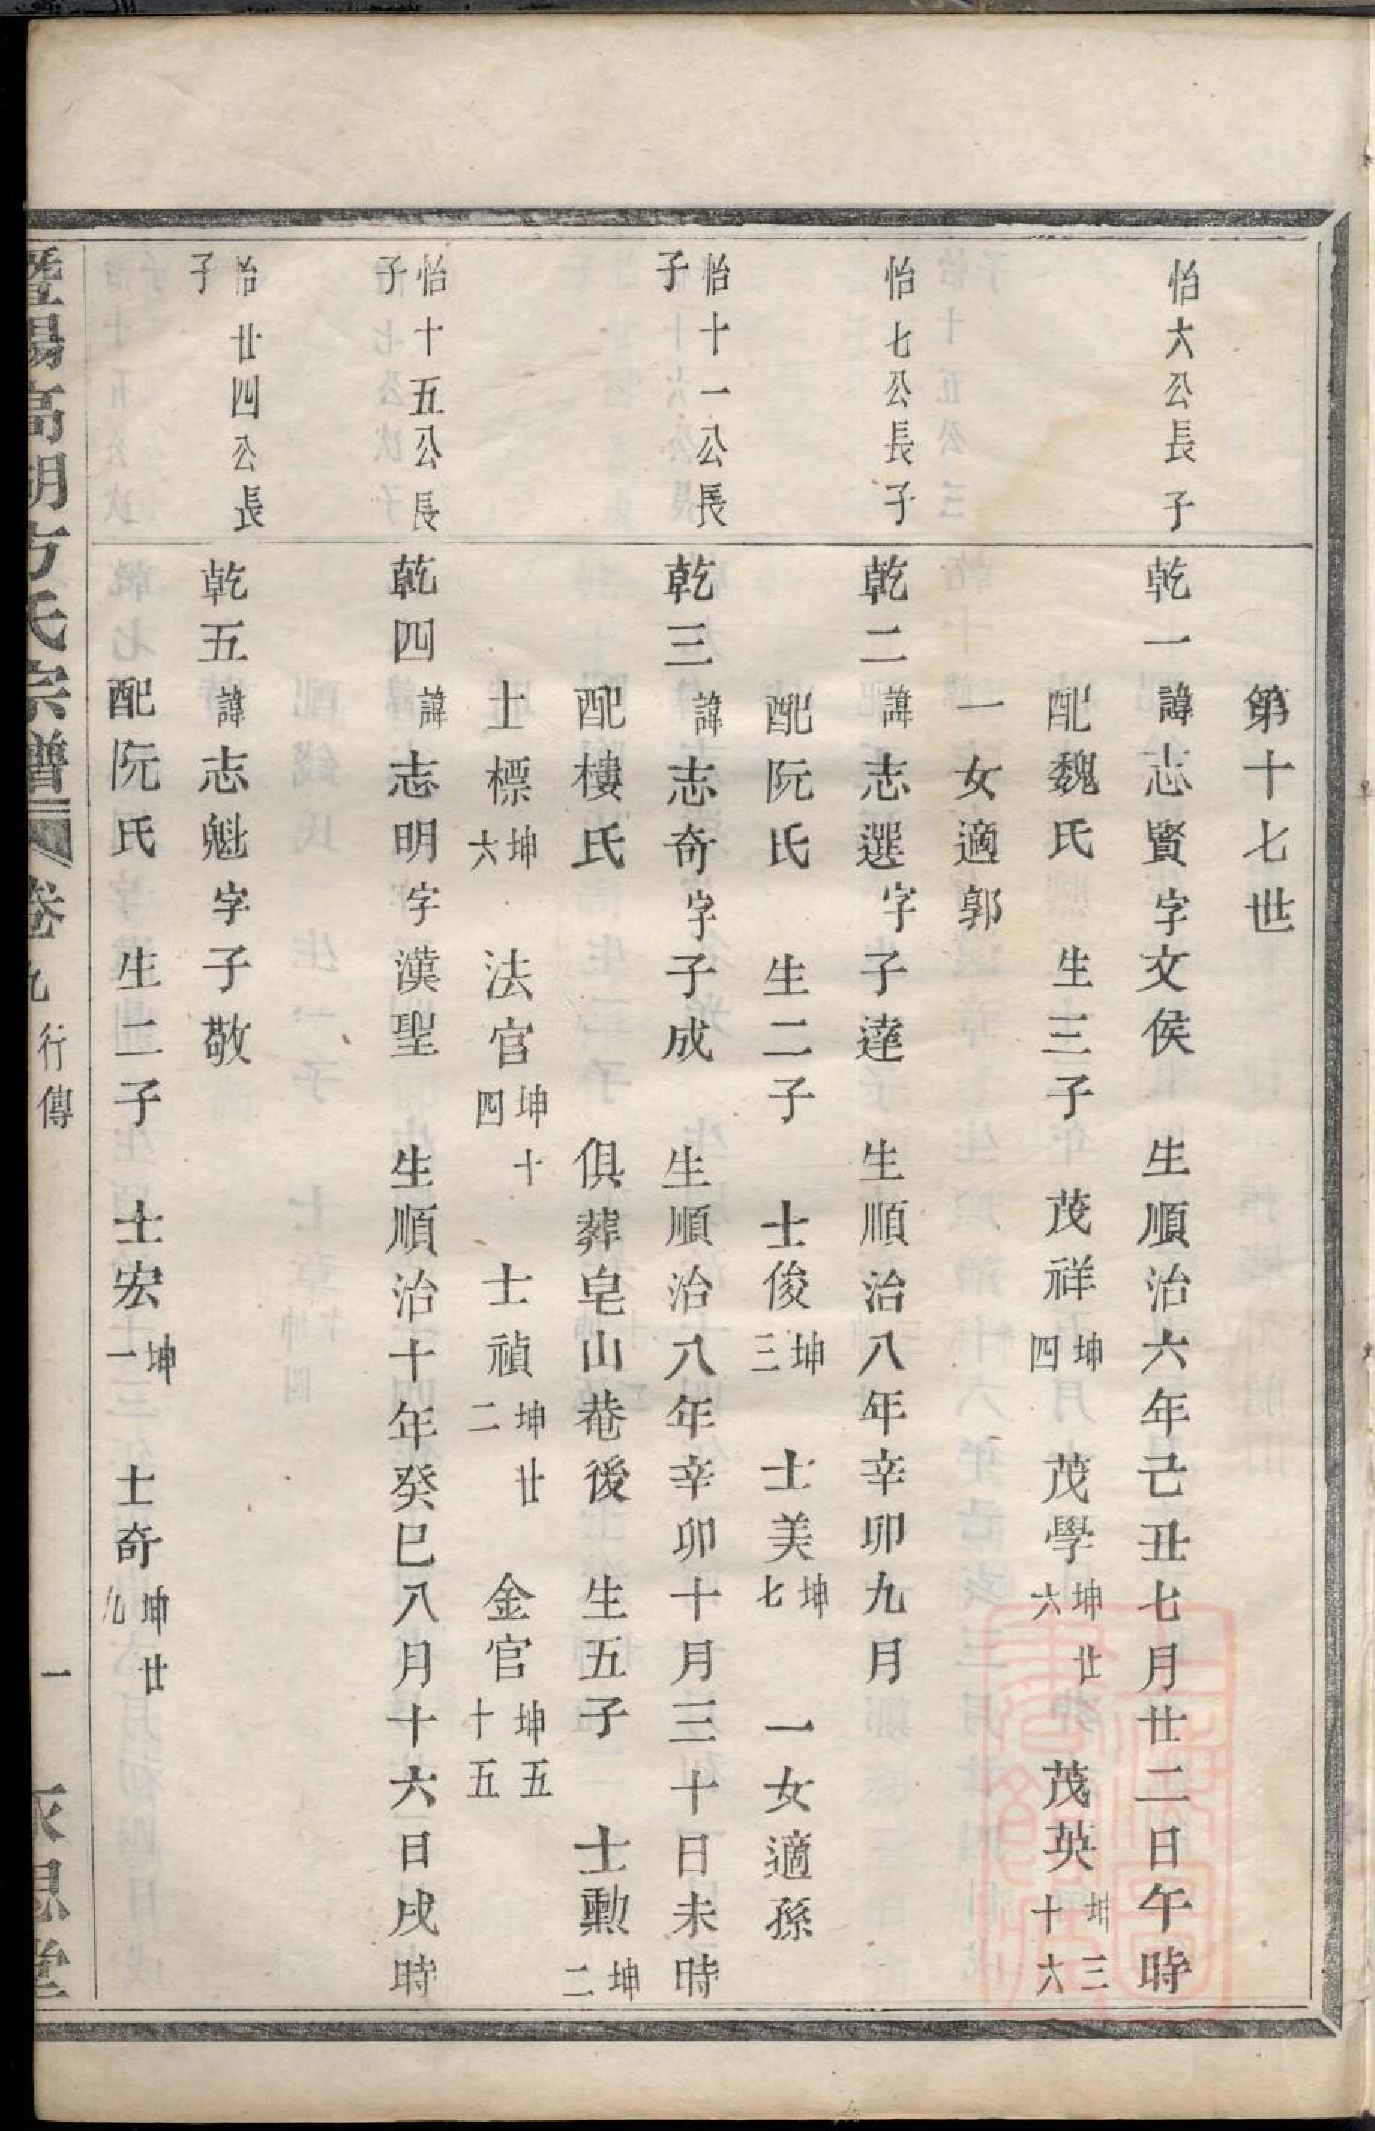 第十七世
怡六公長子
乾一諱志賢字文侯　生順治六年己丑七月廿二日午時
配魏氏　生三子　茂祥坤四　茂學坤廿六　茂英坤三十六
一女適郭
怡七公長子
乾二諱志選字子達　生順治八年辛卯九月
配阮氏　生二子　士俊坤三　士美坤七　一女適孫
怡十一公長子
乾三諱志奇字子成　生順治八年辛卯十月三十日未時
配樓氏　俱葬皂山菴後　生五子　士勳坤二
士標坤六　法官坤十四　士禎坤廿二　金官坤五十五
怡十五公長子
乾四諱志明字漢聖　生順治十年癸巳八月十六日戌時
怡廿四公長子
乾五諱志魁字子敬
配阮氏　生二子　士宏坤一　士奇坤廿九
暨陽高湖方氏宗譜　卷九　行傳　一　永思堂